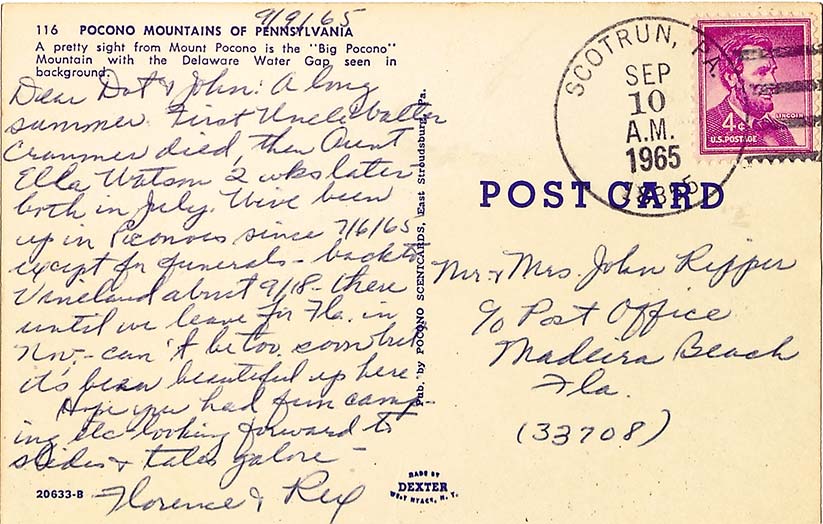 9/9/65
116 POCONO MOUNTAINS OF PENNSYLVANIA
A pretty sight from Mount Pocono is the "Big Pocono"
Mountain with the Delaware Water Gap seen in
background.
Dear Dot & John: A long
summer. First Uncle Walter
Crammer died, then Aunt
Ella Watson 2 wks later
both in July. We've been
up in Poconos since 7/6/65
except for funerals - back to
Vineland about 9/18 - there
until we leave for Fla. in
Nov. - can't be too soon but
it's been beautiful up here
Hope you had fun camp-
ing etc - looking forward to
slides & tales galore -
Florence & Rex
20633-B
Pub. by POCONO SCENICARDS, East Stroudsburg, Pa.
MADE BY
DEXTER
WEST NYACK, N. Y.
SCOTRUN, PA.
SEP
10
A.M.
1965
18355
4¢
LINCOLN
U.S. POSTAGE
POST CARD
Mr. & Mrs. John Ripper
c/o Post Office
Madeira Beach
Fla.
(33708)